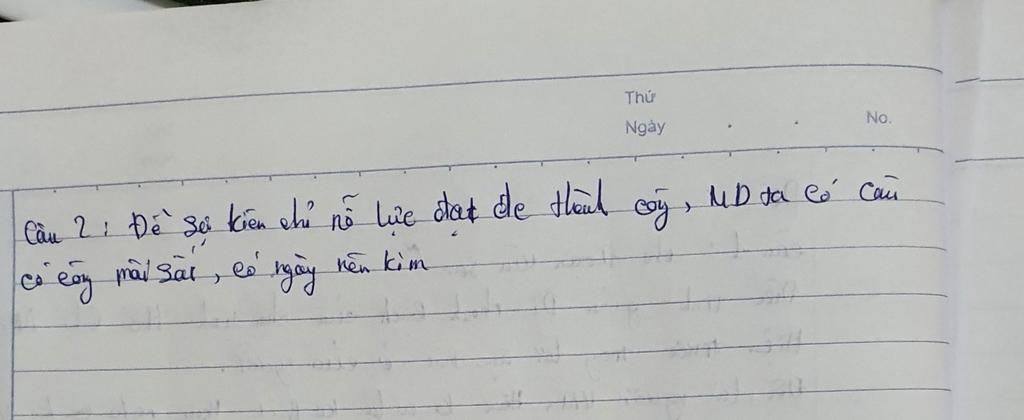 Thứ
Ngày . . No.
Câu 2: Đề sự kiên chỉ nỗ lực đạt đc thành côg, ND ta có câu
có côg mài sắt, có ngày nên kim